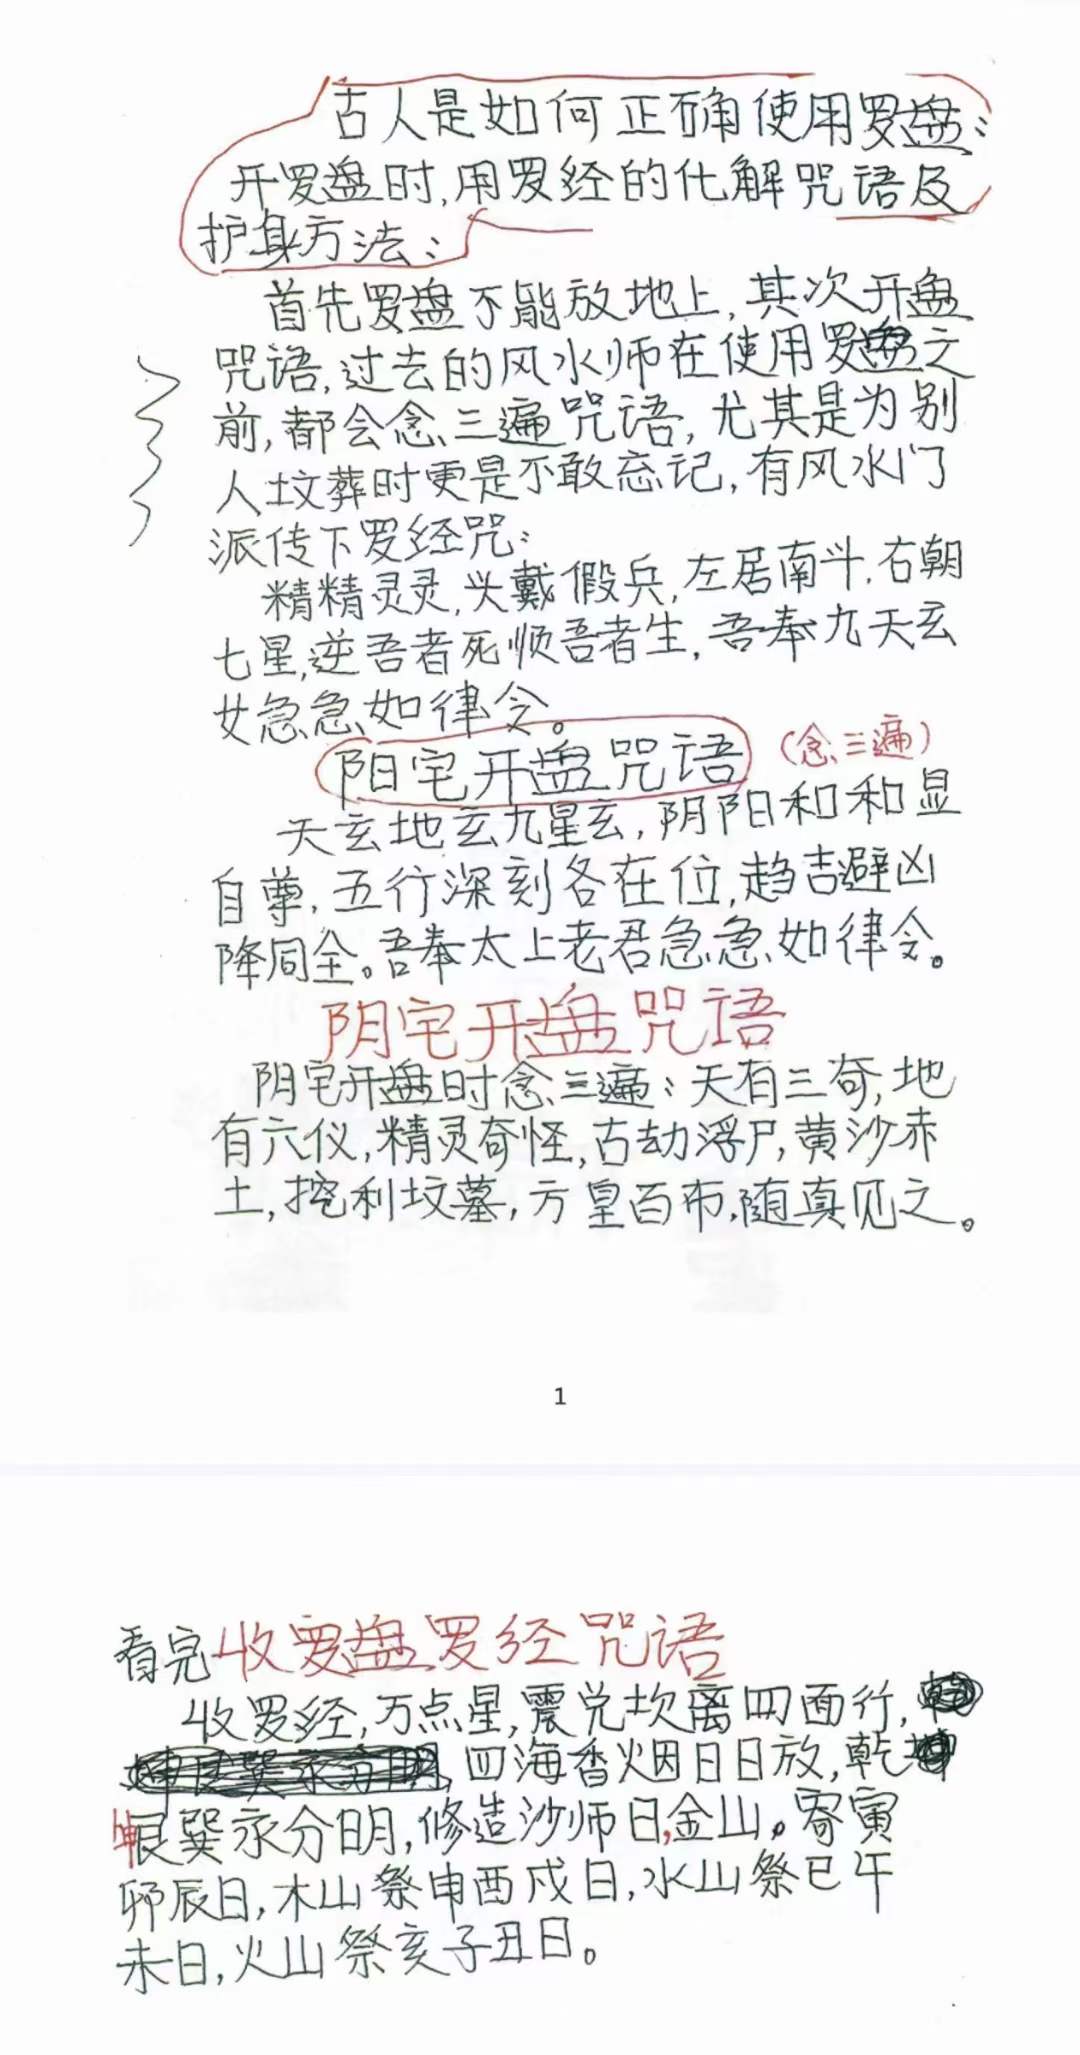 古人是如何正确使用罗盘：
开罗盘时,用罗经的化解咒语及
护身方法：
首先罗盘不能放地上,其次开盘
咒语,过去的风水师在使用罗盘之
前,都会念三遍咒语,尤其是为别
人坟葬时更是不敢忘记,有风水门
派传下罗经咒：
精精灵灵,头戴假兵,左居南斗,右朝
七星,逆吾者死顺吾者生,吾奉九天玄
女急急如律令。
阳宅开盘咒语 (念三遍)
天玄地玄九星玄,阴阳和和显
自尊,五行深刻各在位,趋吉避凶
降同全。吾奉太上老君急急如律令。
阴宅开盘咒语
阴宅开盘时念三遍：天有三奇,地
有六仪,精灵奇怪,古劫浮尸,黄沙赤
土,挖利坟墓,方皇百布,随真见之。
1
看完收罗盘罗经咒语
收罗经,万点星,震兑坎离四面行,
四海香烟日日放,乾
坤艮巽永分明,修造沙师日,金山。寄寅
卯辰日,木山祭申酉戌日,水山祭巳午
未日,火山祭亥子丑日。